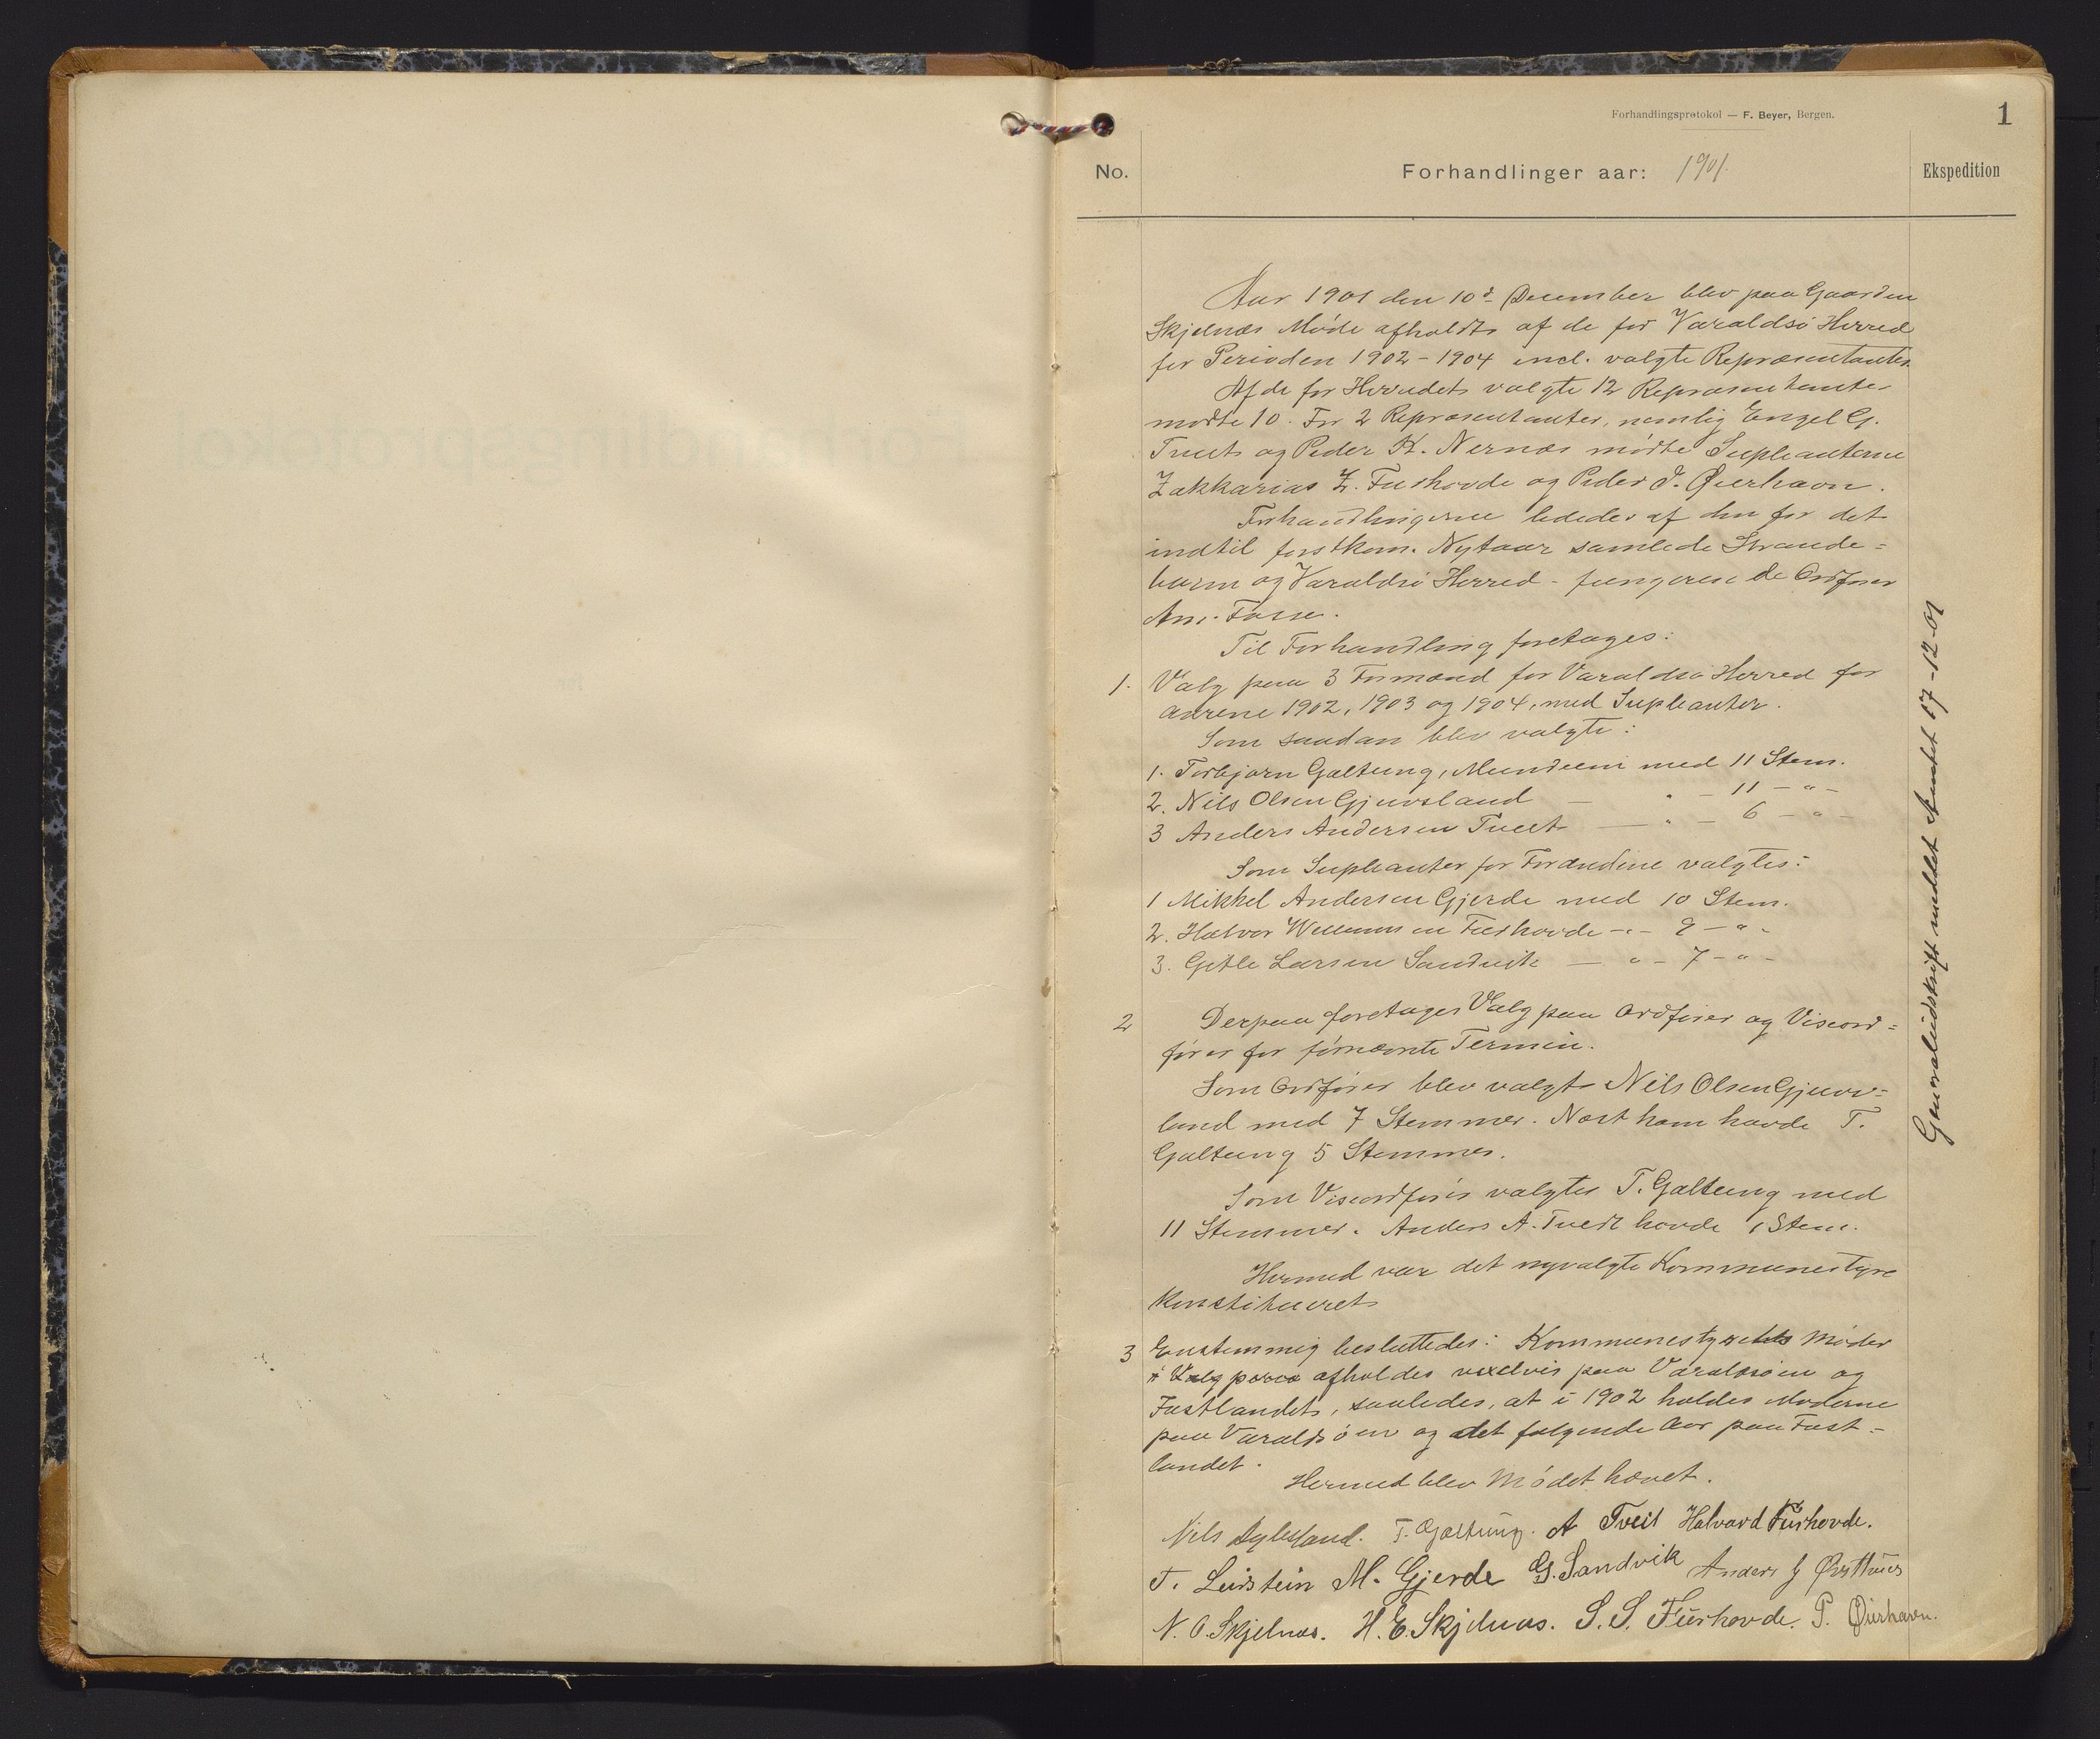 Forhandlingsprotokol — F. Beyer, Bergen.
1
No.
Forhandlinger aar: 1901.
Ekspedition
Aar 1901 den 10d December blev paa Gaarden
Skjelnæs Møde afholdt af de for Varaldsö Herred
for Perioden 1902-1904 incl. valgte Repræsentanter.
Af de for Herredet valgte 12 Repræsentanter
mødte 10. For 2 Repræsentanter, nemlig Engel G.
Tveit og Peder K. Nernæs mödte Supleanterne
Zakkarias Z. Fushovde og Peder J. Øierhavn.
Forhandlingerne lededes af den for det
indtil førstkom. Nytaar samlede Strande=
barm og Varaldsö Herred - fungerende Ordfører
Ans. Fosse.
Til Forhandling foretages:
1. Valg paa 3 Formænd for Varaldsö Herred for
Aarene 1902, 1903 og 1904, med Supleanter.
Som saadan blev valgte:
1. Torbjørn Galtung, Mundeim med 11 Stem.
2. Nils Olsen Gjuvsland — " — 11 — " —
3 Anders Andersen Tveit — " — 6 — " —
Som Supleanter for Formændene valgtes:
1 Mikkel Andersen Gjerde med 10 Stem.
2. Halvor Willumsen Fushovde — " — 9 — " —
3. Gitle Larsen Sandvik — " — 7 — " —
2 Derpaa foretages Valg paa Ordfører og Viseord=
fører for førnævnte Termin.
Som Ordfører blev valgt Nils Olsen Gjuvs=
land med 7 Stemmer. Næst ham havde T.
Galtung 5 Stemmer.
Som Viseordfører valgtes T. Galtung med
11 Stemmer. Anders A. Tveit havde 1 Stem.
Hermed var det nyvalgte Kommunestyre
Konstitueret
3 Enstemmig besluttedes: Kommunestyrets Møder
afholdes vexelvis paa Varaldsöen og
Fastlandet, saaledes, at i 1902 holdes Møderne
paa Varaldsöen og det følgende Aar paa Fast=
landet.
Hermed blev Mödet hævet.
Nils T. Galtung. A Tveit Halvard Fushovde.
T. Leirstein M. Gjerde G. Sandvik Anders J Østhus
N. O. Skjelnæs. H. E. Skjelnæs. S. S. Fushovde. P. Øierhavn.
Generaludskrift meddelt Amtet 17-12-01